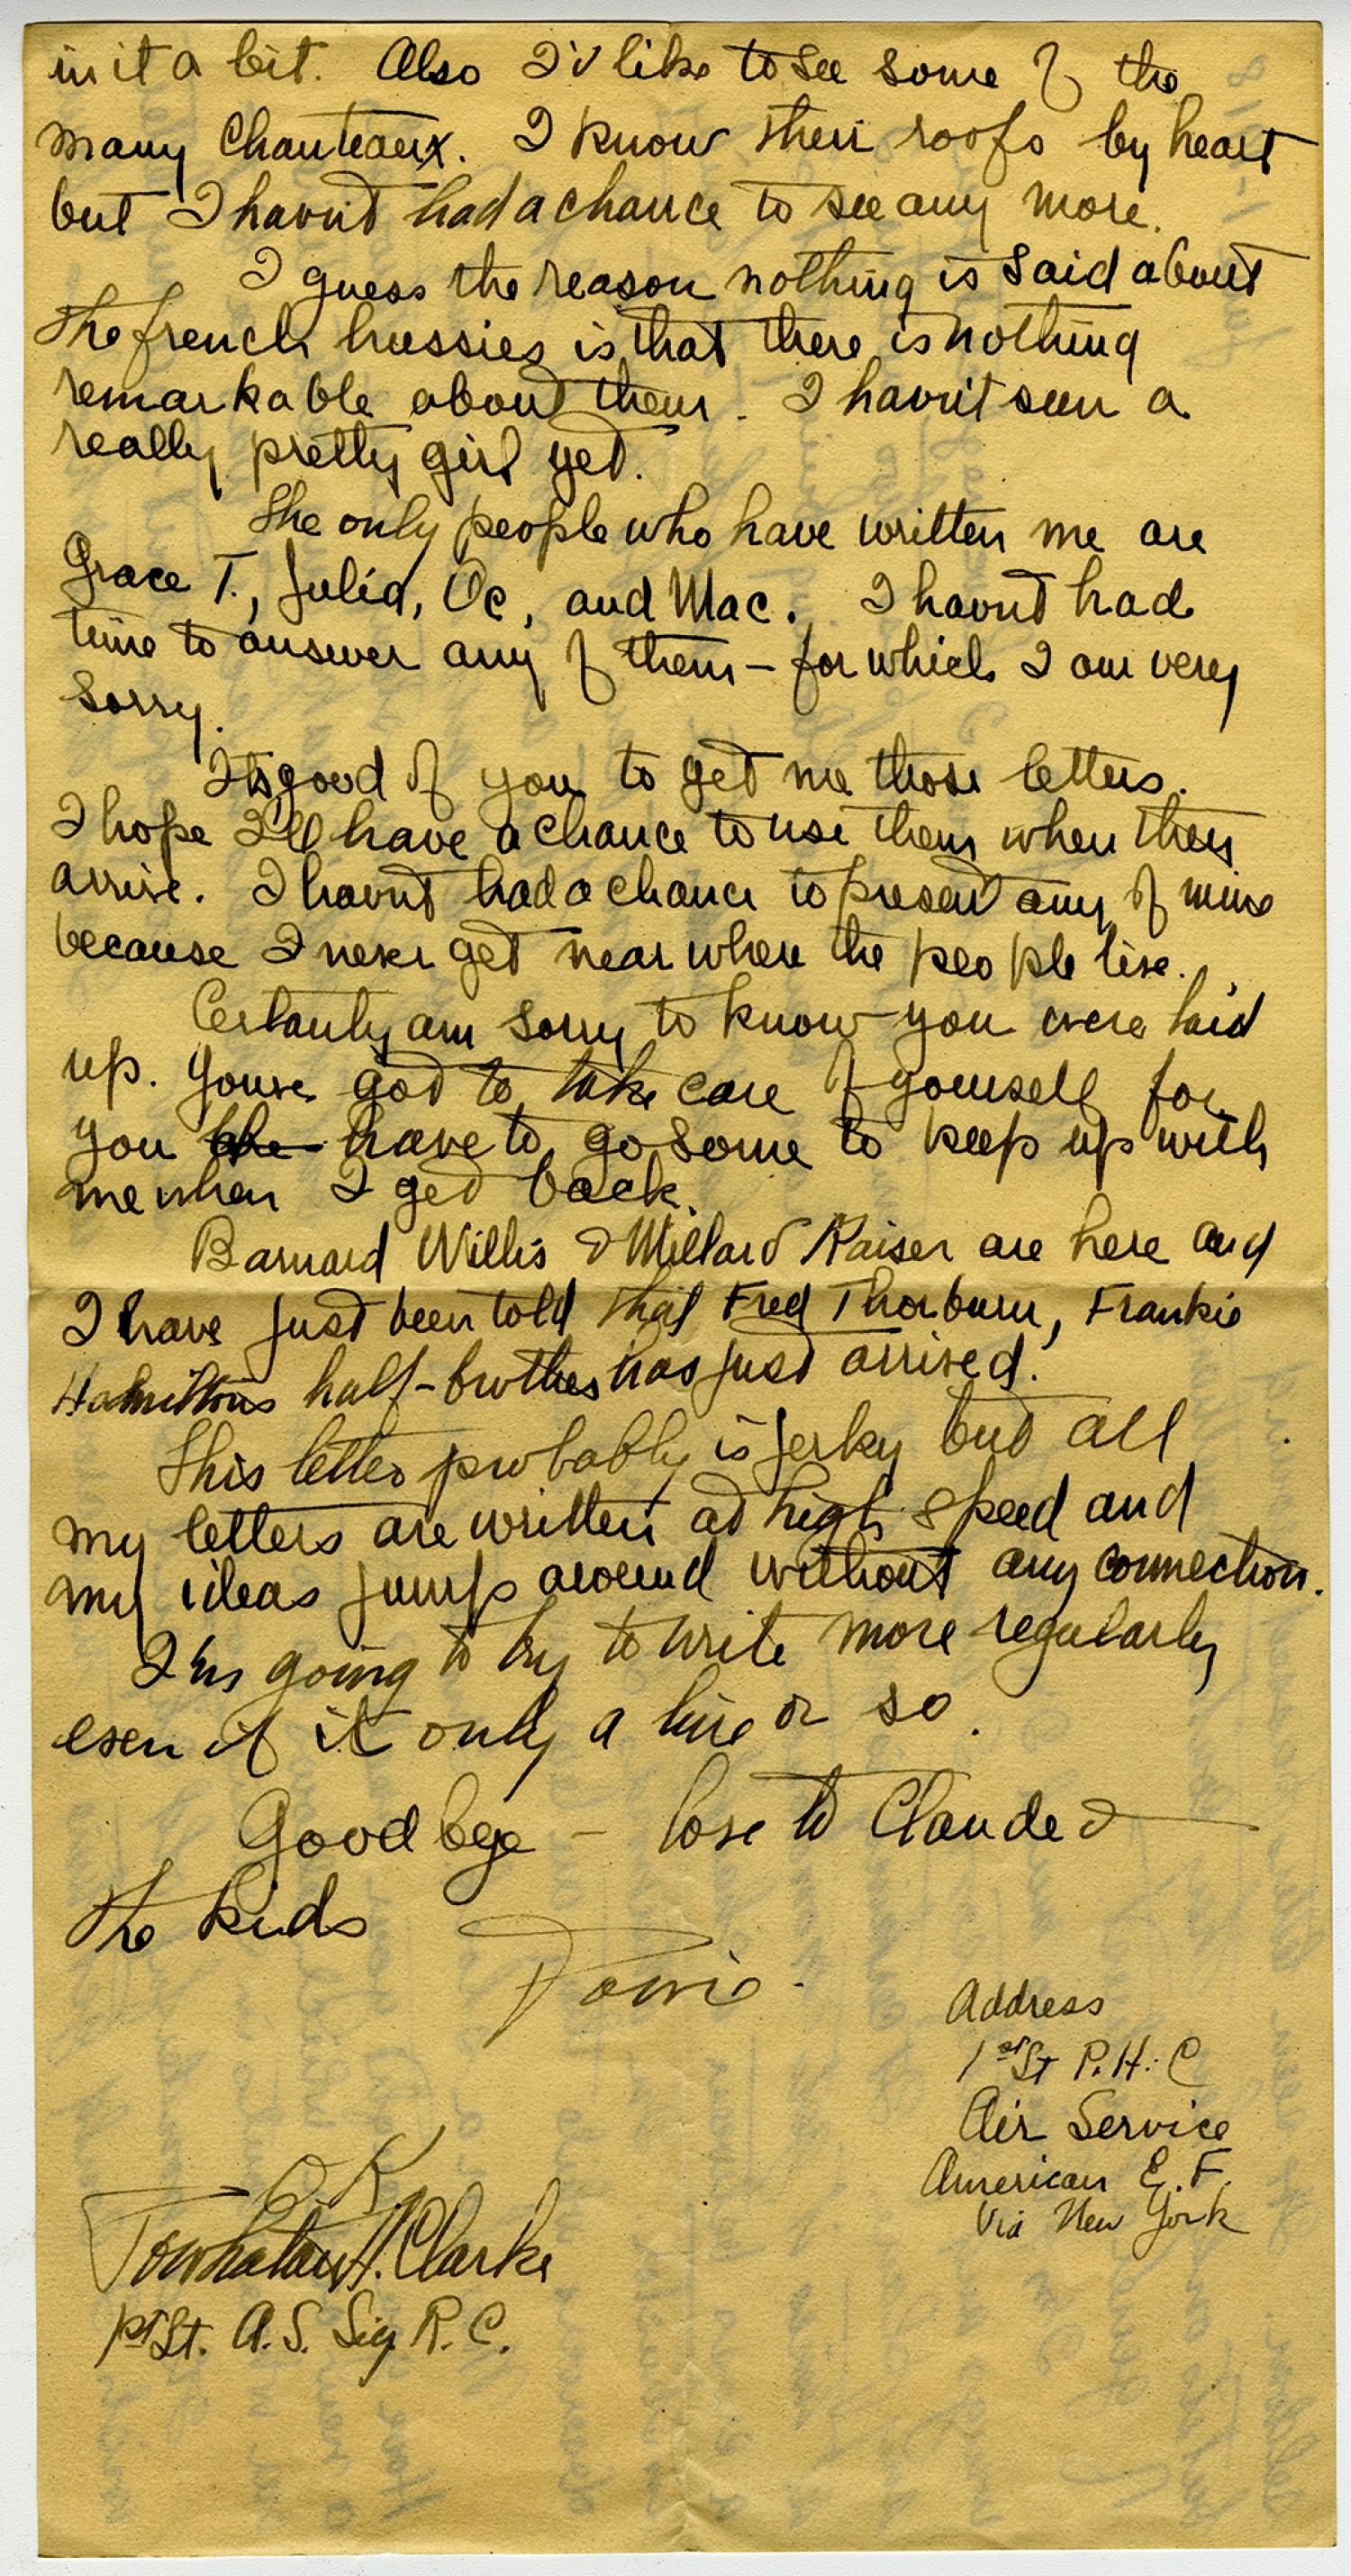 in it a bit. Also I'd like to see some of the
many Chauteaux. I know their roofs by heart
but I havn't had a chance to see any more.
I guess the reason nothing is said about
the french hussies is that there is nothing
remarkable about them. I havn't seen a
really pretty girl yet.
The only people who have written me are
Grace T., Julia, Oc, and Mac. I havn't had
time to answer any of them – for which I am very
sorry.
It's good of you to get me those letters.
I hope I'll have a chance to use them when they
arrive. I havn't had a chance to present any of mine
because I never get near where the people live.
Certanly am sorry to know you were laid
up. Youve got to take care of yourself for
you have to go some to keep up with
me when I get back.
Barnard Willis & Millard Kaiser are here and
I have just been told that Fred Thorburn, Frankie
Hamiltons half-brother has just arrived.
This letter probably is jerky but all
my letters are written at high speed and
my ideas jump around without any connection.
I'm going to try to write more regularly
even if it only a line or so.
Good bye – love to Claude &
the kids
Address
1st Lt P.H.C
Air Service
American E.F.
Via New York
O K
H. Clarke
1st Lt. A.S. Sig. R.C.